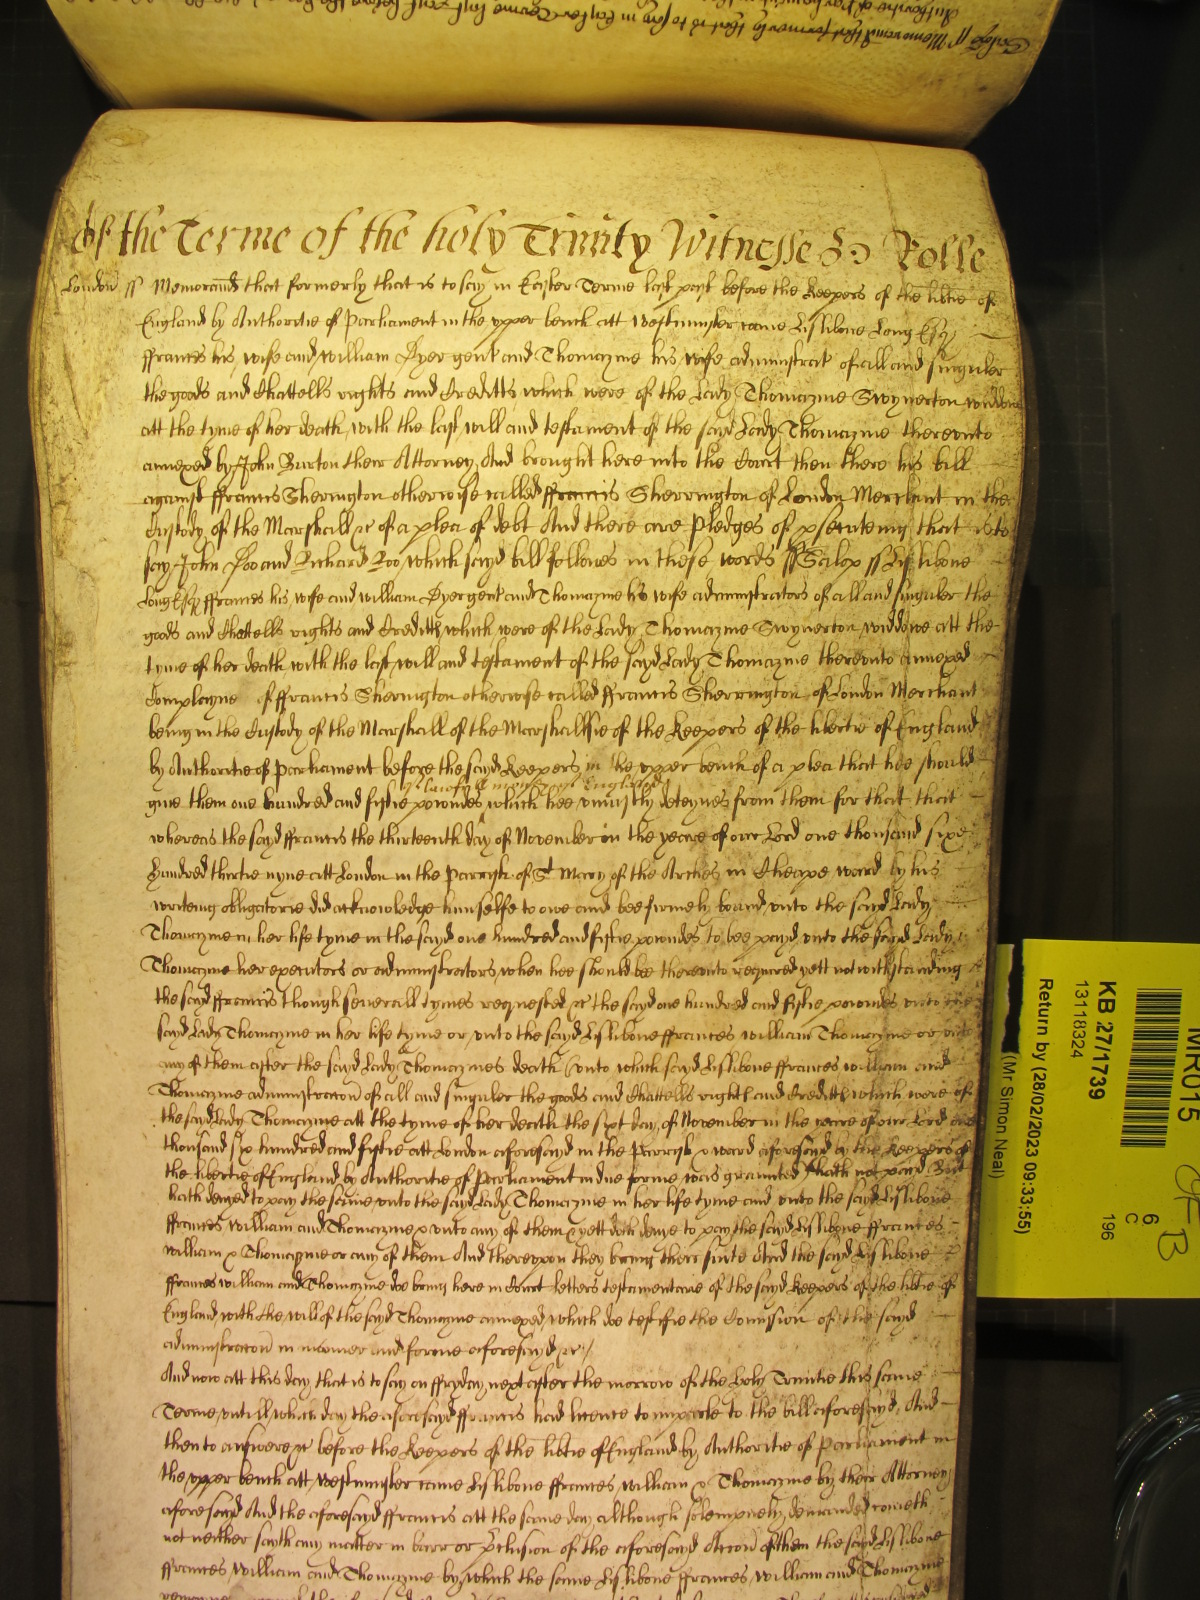 Of the Terme of the holy Trinity Witnesse &c Rolle
London ss Memorand that formerly that is to say in Easter Terme last past before the Keepers of the libtie of
England by Authoritie of Parliament in the vpper bench att Westminster came Lislibone Long Esqr
ffrances his wife and William Dyer gent and Thomazine his wife administrat of all and singuler
the goods and Chattells rights and Creditts which were of the Lady Thomazine Swynerton widdow
att the tyme of her death with the last will and testament of the sayd Lady Thomazine therevnto
annexed by John Burton their Attorney And brought here into the Court then there his bill
against ffrancis Sherington otherwise called ffrancis Sherrington of London Merchant in the
Custody of the Marshall &c of a plea of debt And there are Pledges of psecuteing that is to
say John Doo and Richard Roo, which sayd bill followes in these words ss Lislibone
Long Esqr ffrances his wife and William Dyer gent and Thomazine his wife administrators of all and singuler the
goods and Chattells rights and Creditts which were of the Lady Thomazine Swynerton widdowe att the
tyme of her death with the last will and testament of the sayd Lady Thomazine therevnto annexed
Complayne of ffrancis Sherington otherwise called ffrancis Sherrington of London Merchant
being in the Custody of the Marshall of the Marshallsie of the Keepers of the libertie of England
by Authoritie of Parliament before the sayd Keepers in the vpper bench of a plea that hee should
of lawfull money of England
give them one hundred and fiftie powndes which hee vniustly deteynes from them for that that
whereas the sayd ffrancis the thirteenth day of November in the yeare of our Lord one thousand sixe
hundred thirtie nyne att London in the Parrish of St Mary of the Arches in Cheape ward by his
writeing obligatorie did acknowledge himselfe to owe and bee firmely bound vnto the sayd Lady
Thomazine in her life tyme in the sayd one hundred and fiftie powndes to bee payd vnto the sayd Lady
Thomazine her executors or administrators when hee should bee therevnto required yett notwithstanding
the sayd ffrancis though severall tymes requested &c the sayd one hundred and fiftie powndes vnto the
sayd Lady Thomazine in her life tyme or vnto the sayd Lislibone ffrances William Thomazine or vnto
any of them after the sayd Lady Thomazines death (vnto which sayd Lislibone ffrances William and
Thomazine administracon of all and singuler the goods and Chattells rights and Creditts which were of
the sayd Lady Thomazine att the tyme of her death the sixt day of November in the yeare of our Lord one
thousand six hundred and fiftie att London aforesayd in the Parrish & ward aforesayd by the Keepers of
the libertie of England by Authoritie of Parliament in due forme was graunted) hath not payd But
hath denyed to pay the same vnto the sayd Lady Thomazine in her life tyme and vnto the sayd Lislibone
ffrances William and Thomazine & vnto any of them & yett doth denie to pay the sayd Lislibone ffrances
William & Thomazine or any of them And therevpon they bring their suite And the sayd Lislibone
ffrances William and Thomazine doe bring here in Court letters testamentarie of the sayd Keepers of the libtie of
England with the will of the sayd Thomazine annexed, which doe testifie the Comission of the sayd
administracon in manner and forme aforesayd &c
And now att this day that is to say on ffryday next after the morrow of the holy Trinitie this same
Terme vntill which day the aforesayd ffrancis had licence to imparle to the bill aforesayd, And
then to answere &c before the Keepers of the libtie of England by Authoritie of Parliament in
the vpper bench att Westminster came Lislibone ffrances, William & Thomazine by their Attorney
aforesayd And the aforesayd ffrancis att the same day although solempnely demanded cometh
not neither sayth any matter in barr or pclusion of the aforesayd Accon of them the sayd Lislibone
ffrances William and Thomazine by which the same Lislibone ffrances, William and Thomazine
MR015
KB 27/1739
13118324
Return by (28/02/2023 09:33:55)
(Mr Simon Neal)
6
C
196